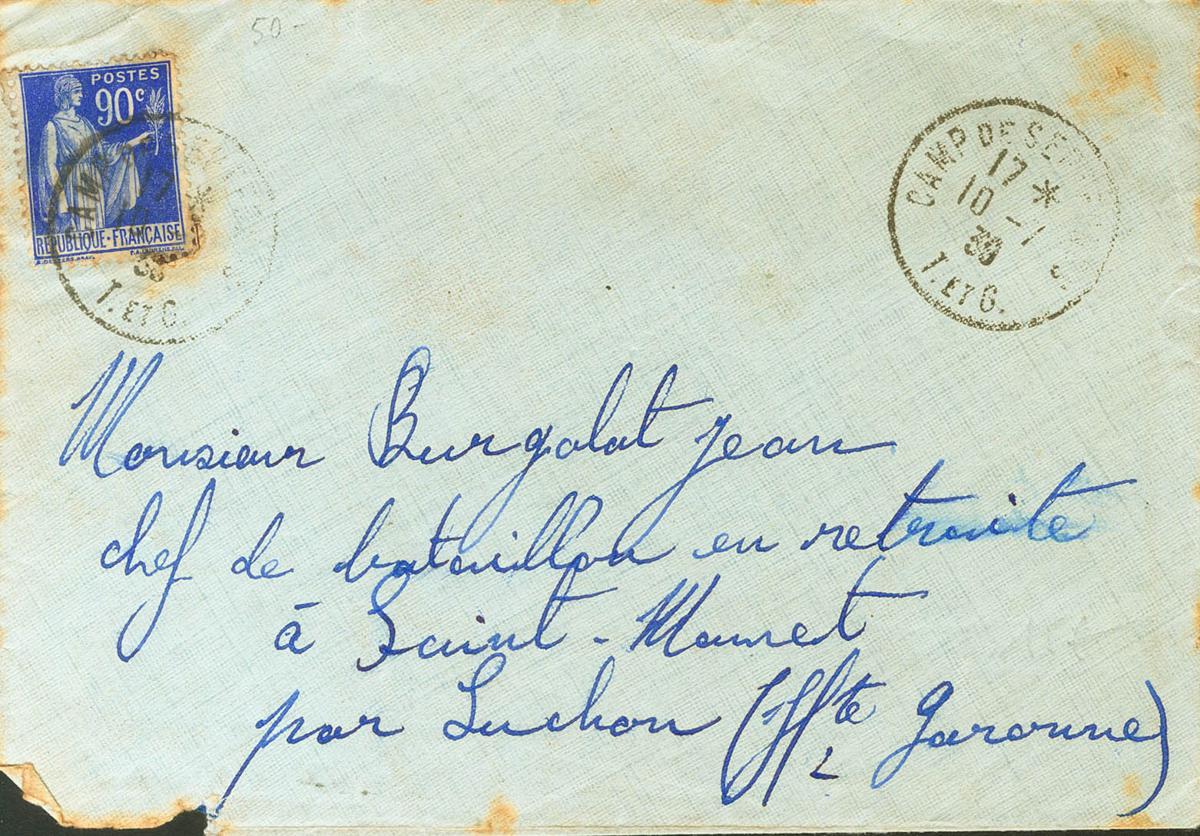 50-
POSTES
90c
REPUBLIQUE-FRANÇAISE
T. ET G.
CAMP DE
17 *
10 -1
39
T. ET G.
Monsieur Burgalat jean
chef de bataillon en retraite
à Saint-Mamet
par Luchon (Hte Garonne)